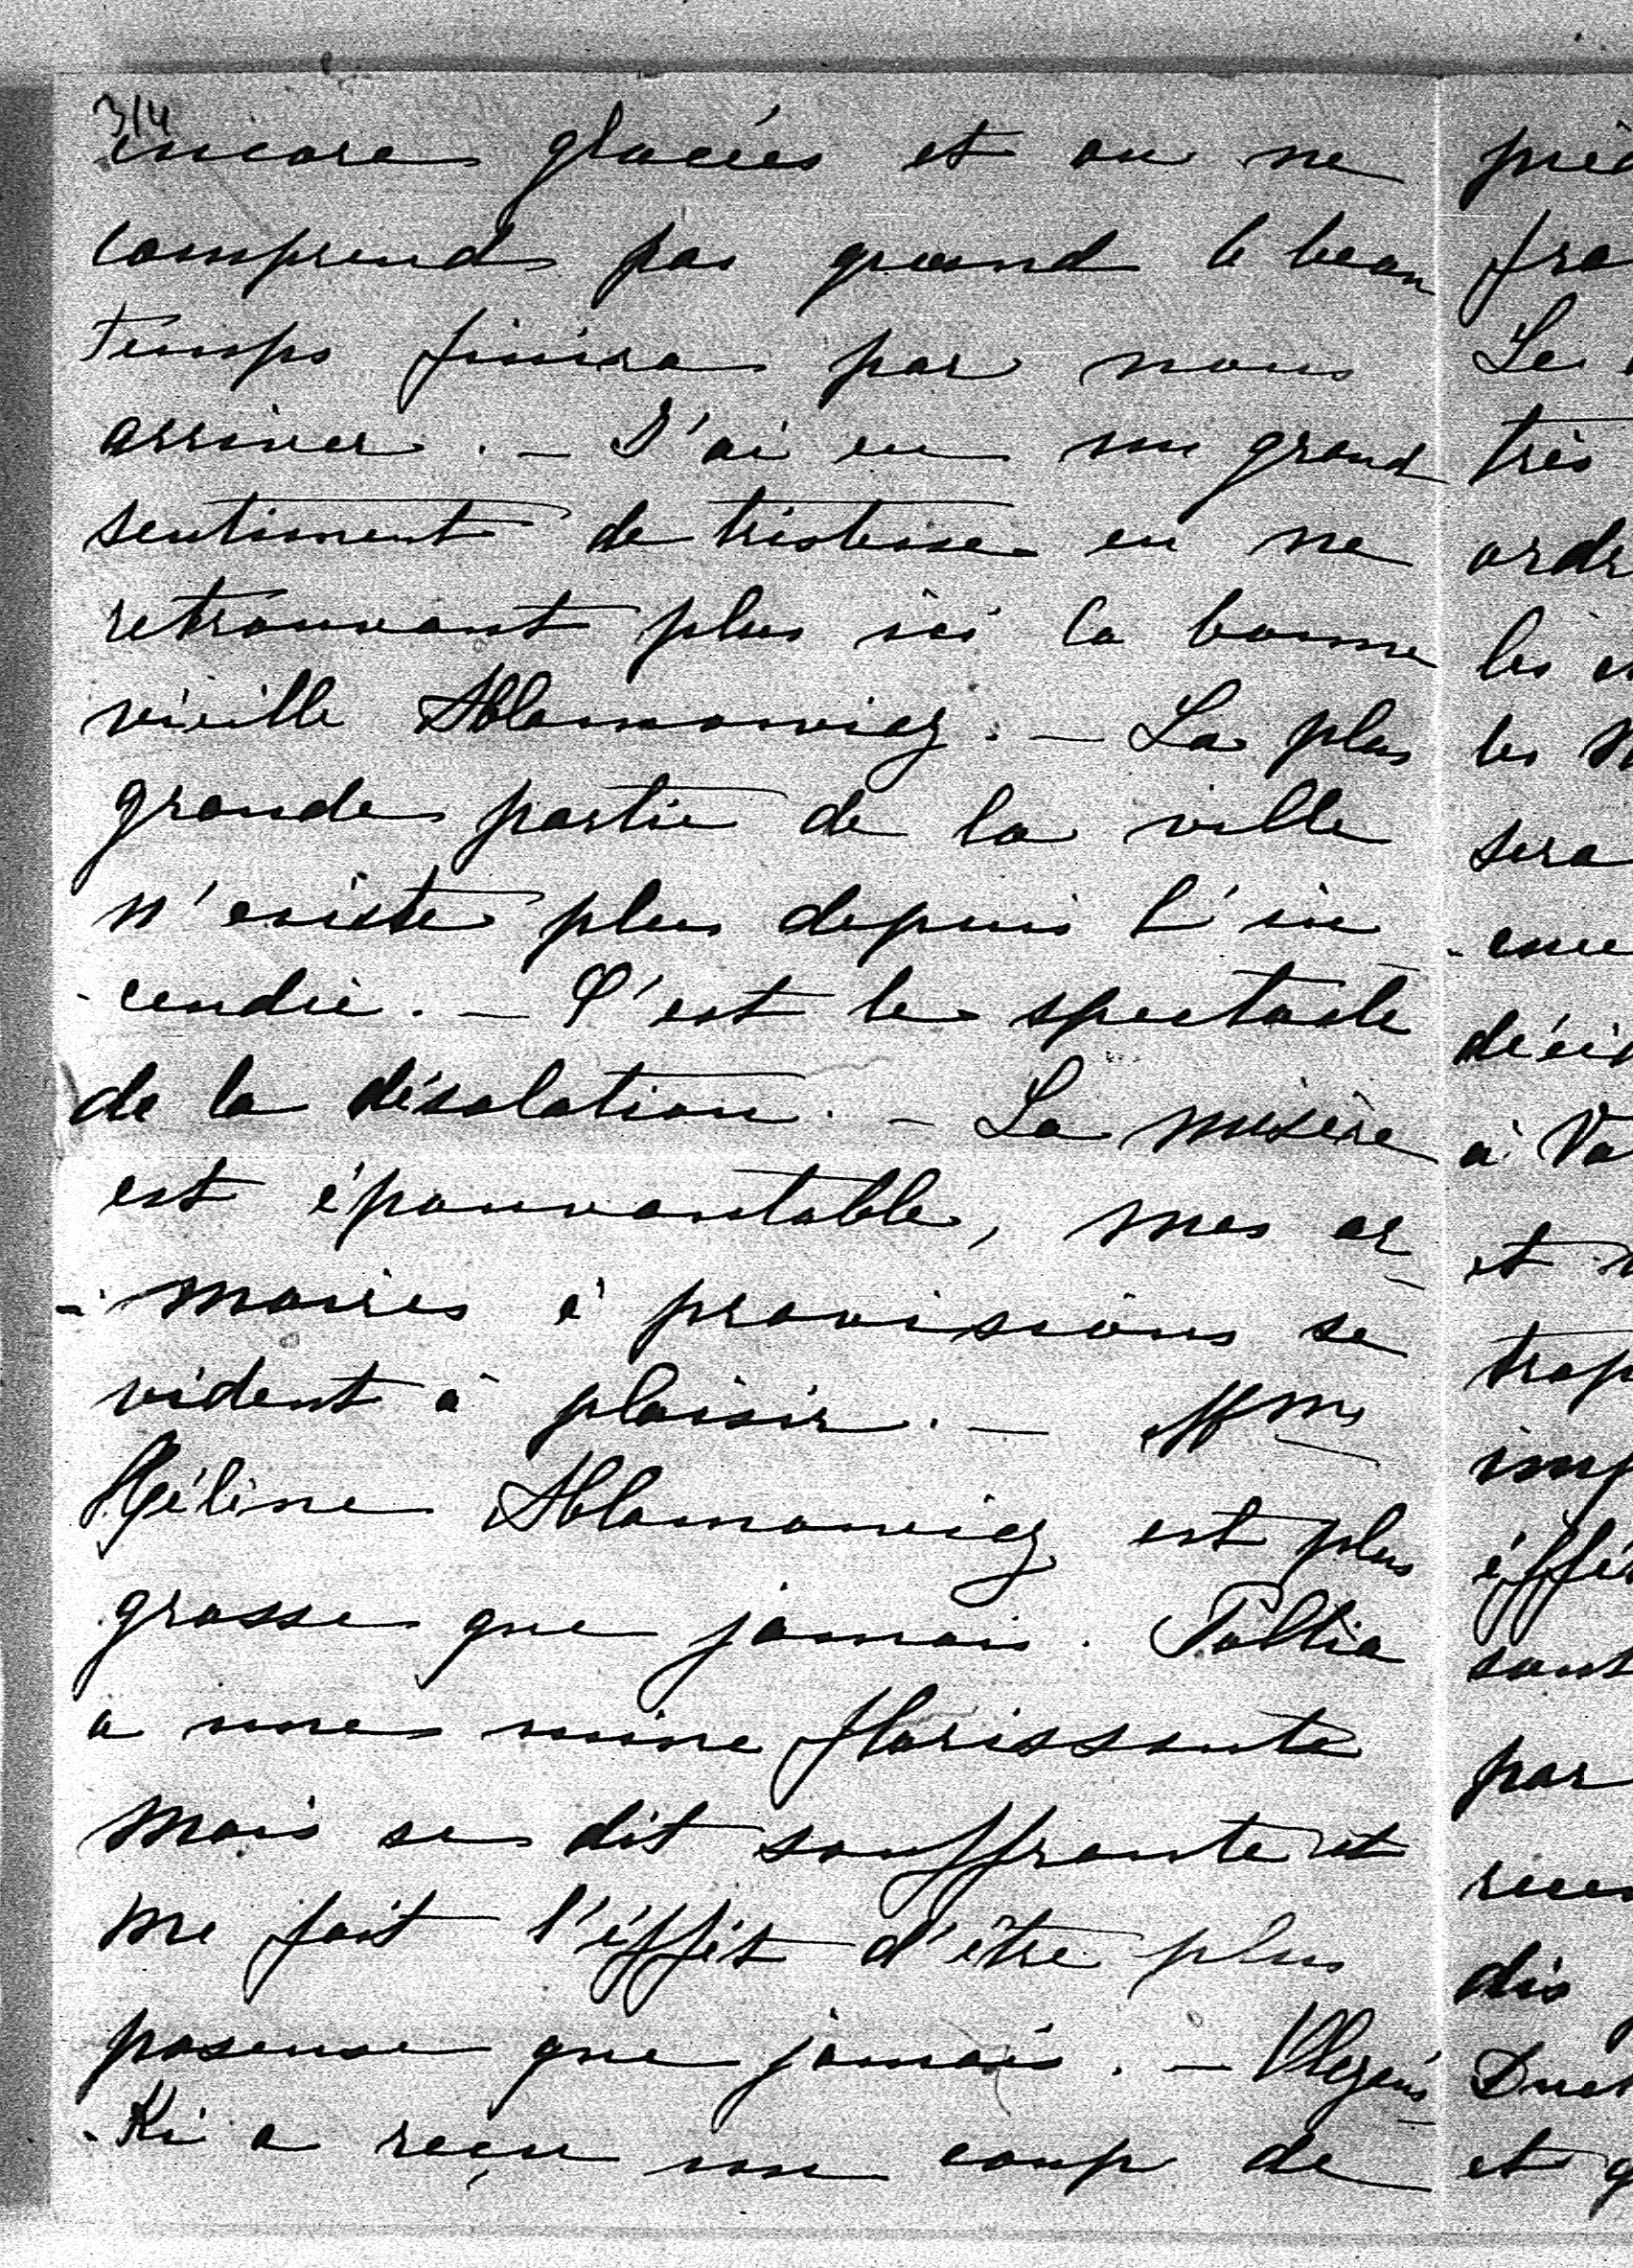 3/4
encore glacées et on ne
comprend pas quand le beau
temps finira par nous
arriver. – J'ai eu un grand
sentiment de tristesse en ne
retrouvant plus ici la bonne
vieille Ablamowicz. – La plus
grande partie de la ville
n'existe plus depuis l'in
-cendie. – C'est le spectacle
de la désolation. – La misère
est épouvantable, mes ar-
-moires à provisions se
vident à plaisir. – Mme
Hélène Ablamowicz est plus
grosse que jamais. Toltia
a une mine florissante
mais se dit souffrante et
me fait l'éffet d'être plus
poseuse que jamais. –
-Ki a reçu un coup de
fra
Le
très
ordr
les
les
sera
à Va
et
trop
imp
sont
par
dis
et q